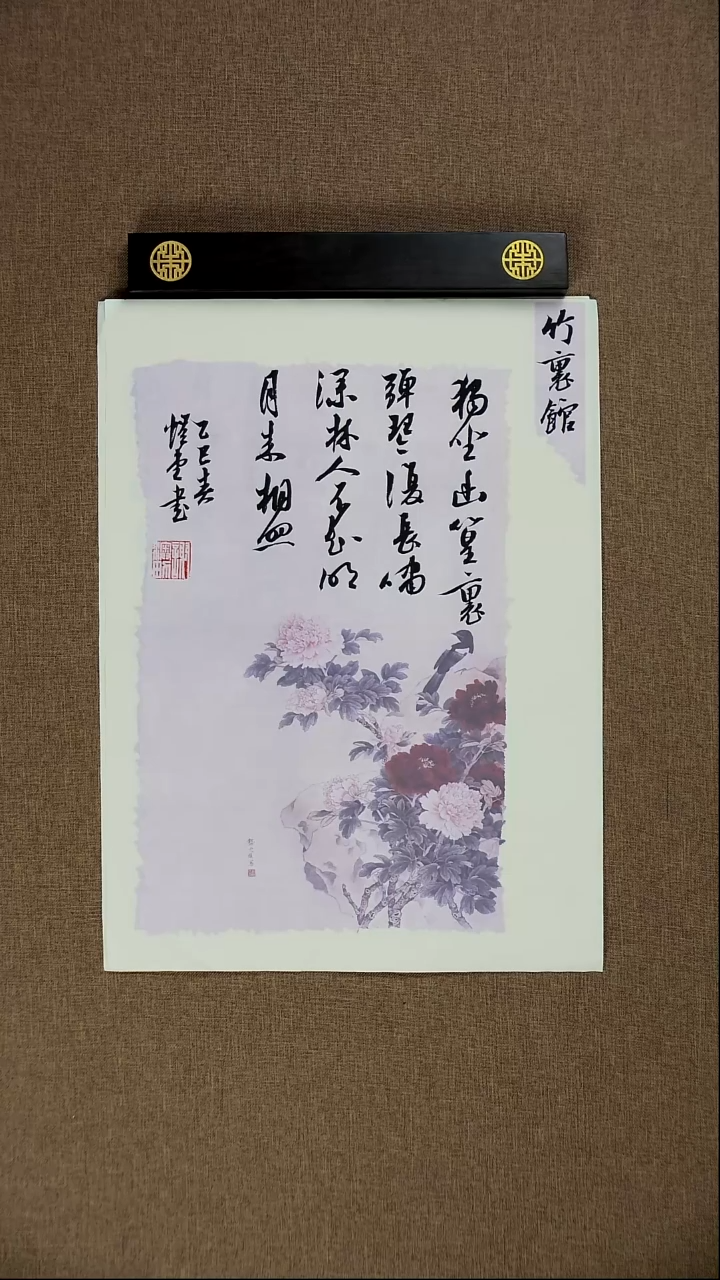 竹裏館
獨坐幽篁裏
彈琴復長嘯
深林人不知明
月来相照
乙巳春
書